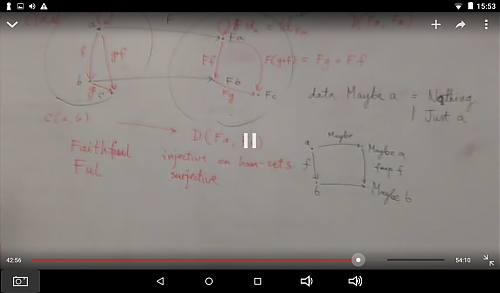 15:53
F(g∘f) = Fg ∘ Ff
a
Fa
f
g∘f
Ff
b
Fb
g
c
Fg
Fc
data Maybe a = Nothing
| Just a
C(a,b)
D(Fa,
Faithful
injective on hom-sets
Ful
surjective
Maybe
a
Maybe a
f
fmap f
b
Maybe b
42:56
54:10